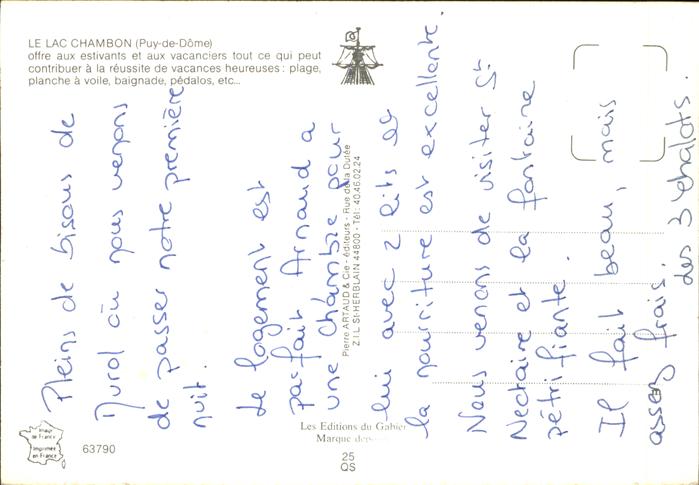 LE LAC CHAMBON (Puy-de-Dôme)
offre aux estivants et aux vacanciers tout ce qui peut
contribuer à la réussite de vacances heureuses : plage,
planche à voile, baignade, pédalos, etc...
Pleins de bisous de
Murol où nous venons
de passer notre première
nuit.
Le logement est
parfait Arnaud a
une chambre pour
lui avec 2 lits et
la nourriture est excellente.
Nous venons de visiter St
Nectaire et la fontaine
pétrifiante.
Il fait beau, mais
assez frais.
Les 3
Pierre ARTAUD & Cie - éditeurs - Rue de la Durée
Z.I.L. St-HERBLAIN 44800 - Tél : 40.46.02.24
Les Editions du Gabier
Marque
Image de France
Imprimée en France
63790
25
QS